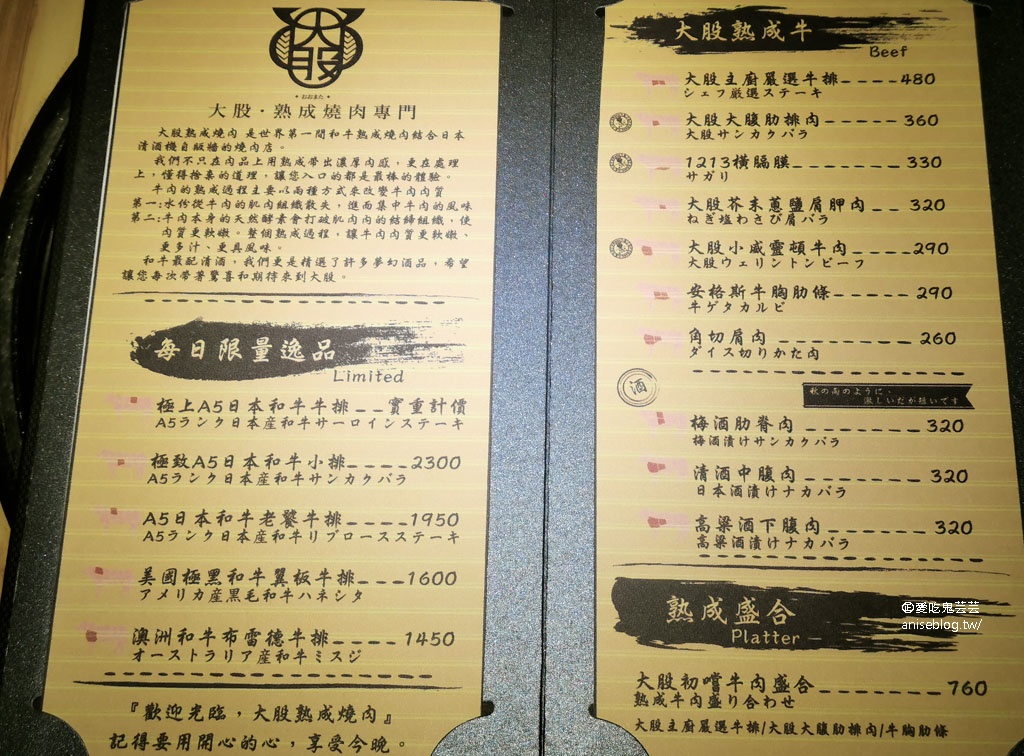 大股
おおまた
大股・熟成燒肉專門
大股熟成燒肉 是世界第一間和牛熟成燒肉結合日本
清酒機自販牆的燒肉店。
我們不只在肉品上用熟成帶出濃厚肉感，更在處理
上，懂得捨棄的道理，讓您入口的都是最棒的體驗。
牛肉的熟成過程主要以兩種方式來改變牛肉肉質
第一：水份從牛肉的肌肉組織散失，進而集中牛肉的風味
第二：牛肉本身的天然酵素會打破肌肉內的結締組織，使
肉質更軟嫩。整個熟成過程，讓牛肉肉質更軟嫩、
更多汁、更具風味。
和牛最配清酒，我們更是精選了許多夢幻酒品，希望
讓您每次帶著驚喜和期待來到大股。
每日限量逸品
Limited
極上A5日本和牛牛排__實重計價
A5ランク日本産和牛サーロインステーキ
極致A5日本和牛小排____2300
A5ランク日本産和牛サンカクバラ
A5日本和牛老饕牛排____1950
A5ランク日本産和牛リブロースステーキ
美國極黑和牛翼板牛排___1600
アメリカ産黒毛和牛ハネシタ
澳洲和牛布雷德牛排_____1450
オーストラリア産和牛ミスジ
『歡迎光臨，大股熟成燒肉』
記得要用開心的心，享受今晚。
大股熟成牛
Beef
大股主廚嚴選牛排_____480
シェフ厳選ステーキ
大股大腹肋排肉_____360
大股サンカクバラ
1213橫膈膜_______330
サガリ
大股芥末蔥鹽肩胛肉__320
ねぎ塩わさび肩バラ
大股小威靈頓牛肉____290
大股ウェリントンビーフ
安格斯牛胸肋條______290
牛ゲタカルビ
角切肩肉_________260
ダイス切りかた肉
酒
秋の雨のように、
激しいだが短いです
梅酒肋脊肉________320
梅酒漬けサンカクバラ
清酒中腹肉________320
日本酒漬けナカバラ
高粱酒下腹肉_______320
高粱酒漬けナカバラ
熟成盛合
Platter
大股初嚐牛肉盛合________760
熟成牛肉盛り合わせ
大股主廚嚴選牛排/大股大腹肋排肉/牛胸肋條
©愛吃鬼芸芸
aniseblog.tw/